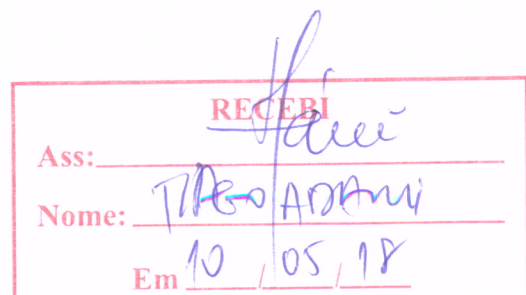 RECEBI
Ass:
Nome: TIAGO ADAMI
Em 10 / 05 / 18